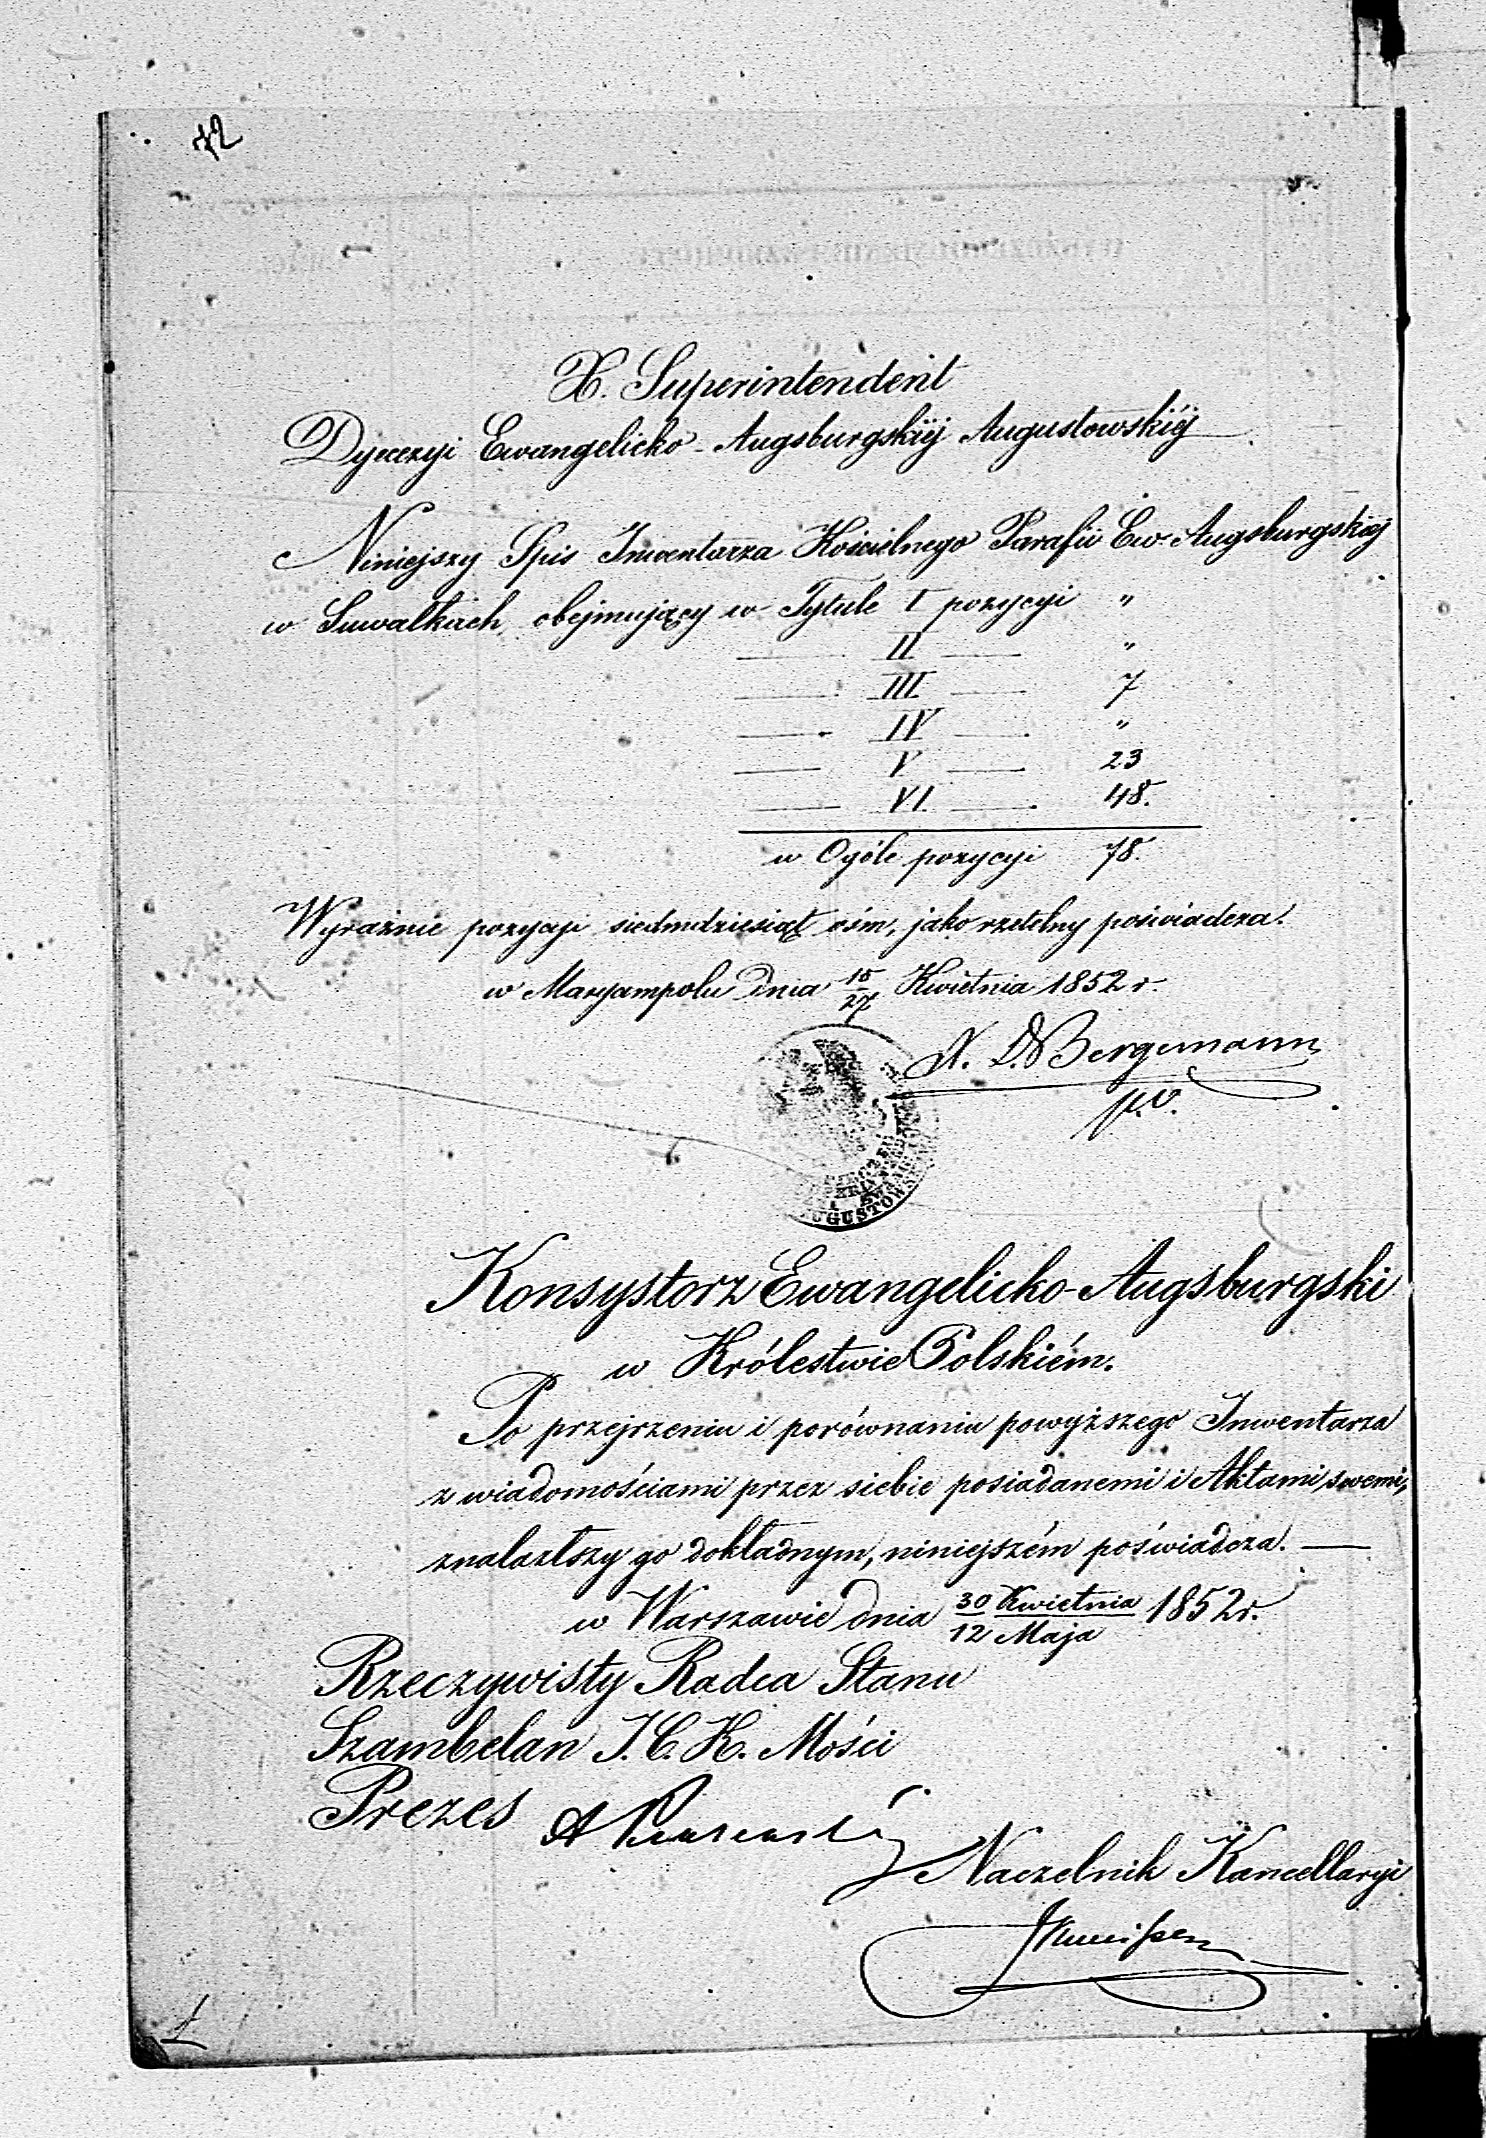 72
X. Superintendent
Dyecezyi Ewangelicko-Augsburgskiéj Augustowskiéj
Niniejszy Spis Inwentarza Kościelnego Parafii Ew. Augsburgskiéj
w Suwałkach, obejmujący w Tytule I pozycyi "
II "
III 7
IV "
V 23
VI. 48.
w Ogóle pozycyi 78.
Wyraźnie pozycyi siedmdziesiąt ośm, jako rzetelny poświadcza.
w Maryampolu dnia 15/27 Kwietnia 1852 r.
X. D. Bergemann
AUGUSTOWS
Konsystorz Ewangelicko-Augsburgski
w Królestwie Polskiém.
Po przejrzeniu i porównaniu powyższego Inwentarza
z wiadomościami przez siebie posiadanemi i Aktami swemi,
znalazłszy go dokładnym, niniejszém poświadcza.
w Warszawie dnia 30 Kwietnia/12 Maja 1852 r.
Rzeczywisty Radca Stanu
Szambelan J. C. K. Mości
Prezes
Naczelnik Kancellaryi